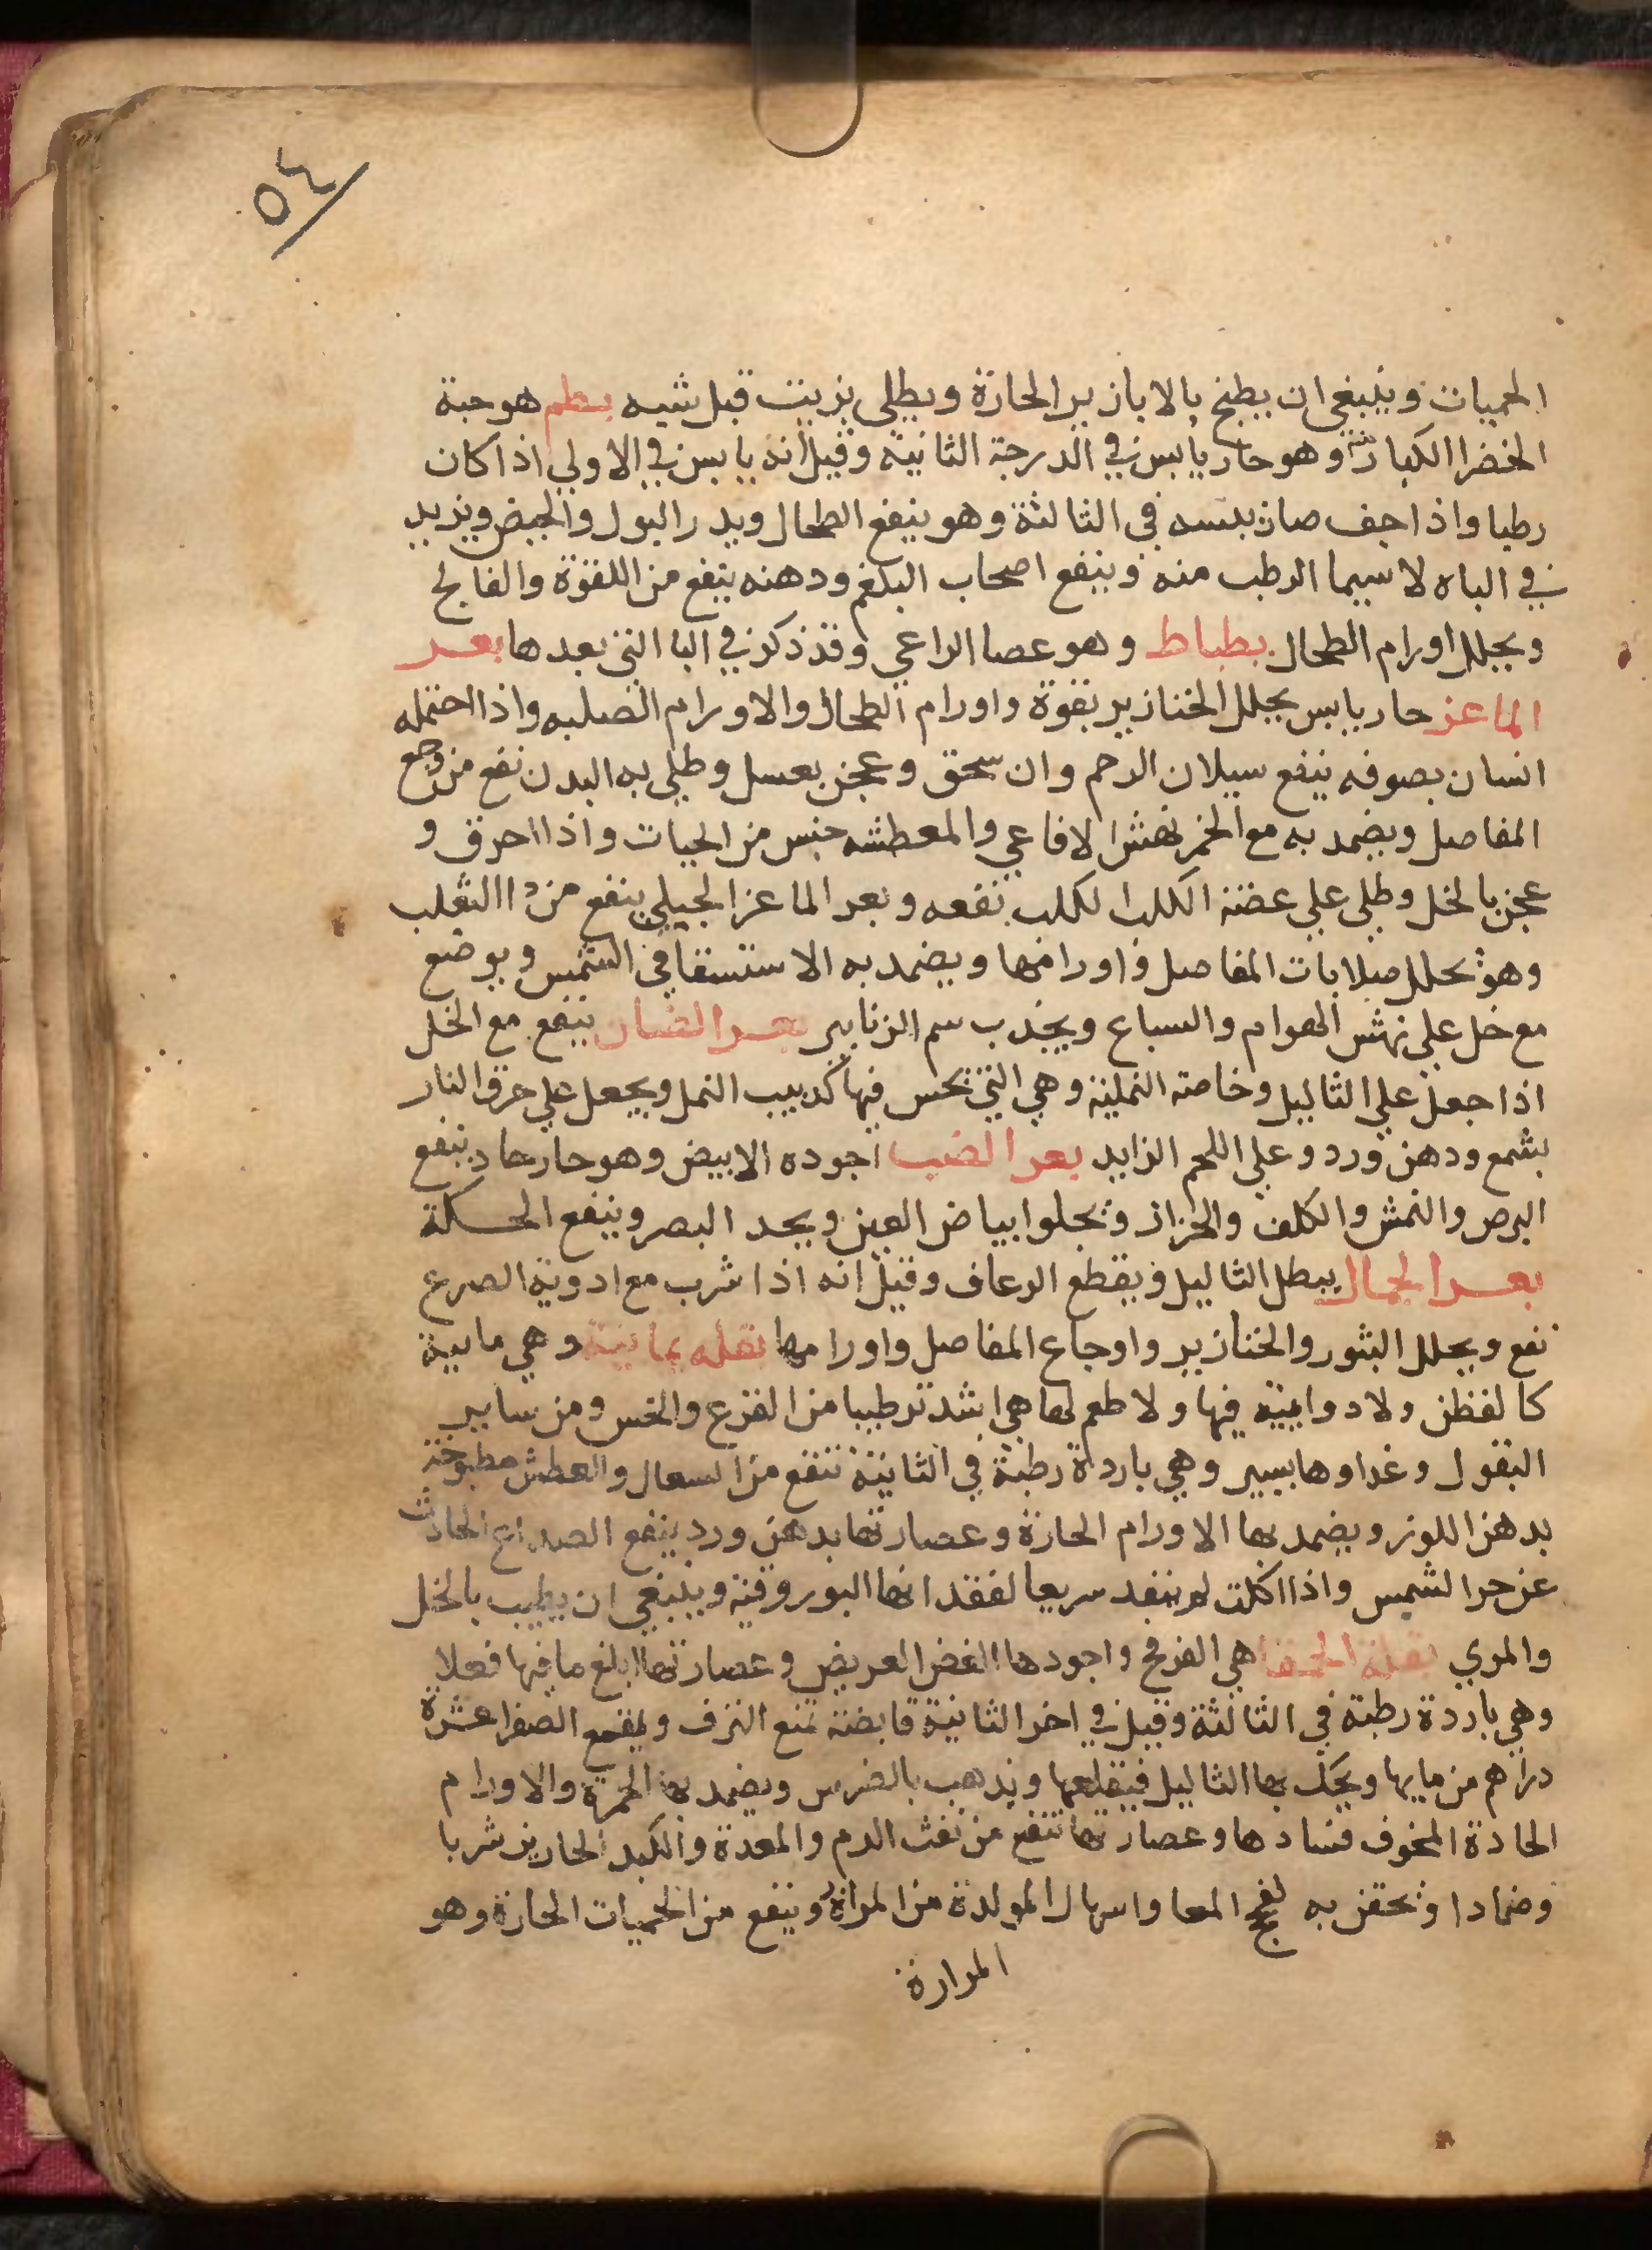 ٥٤
الحميات وينبغي ان يطبخ بالابازير الحارة ويطلى بزيت قبل شيه بطم هو حبة
الخضرا الكبار وهو حار يابس في الدرجة الثانية وقيل انه يابس في الاولي اذا كان
رطبا واذا جف صار يبسه في الثالثة وهو ينفع الطحال ويدر البول والحيض ويزيد
في الباه لا سيما الرطب منه وينفع اصحاب البلغم ودهنه ينفع من اللقوة والفالج
ويحلل اورام الطحال بطباط وهو عصا الراعي وقد ذكر في البا التي بعدها بعر
الماعز حار يابس يحلل الخنازير بقوة واورام الطحال والاورام الصلبه واذا احتمله
انسان بصوفه ينفع سيلان الرحم وان سحق وعجن بعسل وطلي به البدن نفع من وجع
المفاصل ويضمد به مع الخمر لنهش الافاعي والمعطشه جنس من الحيات واذا احرق و
عجن بالخل وطلي علي عضة الكلب الكلب نفعه وبعر الماعز الجبلي ينفع من دا الثعلب
وهو يحلل صلابات المفاصل واورامها ويضمد به الاستسقا في الشمس ويوضع
مع خل علي نهش الهوام والسباع ويجذب سم الزنابير بعر الضان ينفع مع الخل
اذا جعل علي الثاليل وخاصة النملية وهي التي تحس فيها كدبيب النمل ويجعل علي حرق النار
بشمع ودهن ورد وعلي اللحم الزايد بعر الضب اجوده الابيض وهو حار حاد ينفع
البرص والنمش والكلف والحزاز ويجلوا بياض العين ويحد البصر وينفع الحكة
بعر الجمال يبطل الثاليل ويقطع الرعاف وقيل انه اذا شرب مع ادوية الصرع
نفع ويحلل البثور والخنازير واوجاع المفاصل واورامها بقله يمانية وهي مايية
كالقطن ولا دوايية فيها ولا طعم لها هي اشد ترطيبا من القرع والخس ومن ساير
البقول وغداوها يسير وهي باردة رطبة في الثانية تنفع من السعال والعطش مطبوخة
بدهن اللوز ويضمد بها الاورام الحارة وعصارتها بدهن ورد ينفع الصداع الحادث
عن حر الشمس واذا اكلت لم ينفد سريعا لفقدانها البوروقية وينبغي ان يطيب بالخل
والمري بقلة الحمقا هي الفرفح واجودها الغض العريض وعصارتها ابلغ ما فيها فعلا
وهي باردة رطبة في الثالثة وقيل في اخر الثانية قابضة تمنع النزف ويقمع الصفرا عشرة
دراهم من مايها ويحك بها الثاليل فيقلعها ويذهب بالضرس ويضمد بها الحمرة والاورام
الحادة المخوف فسادها وعصارتها تنفع من نفث الدم والمعدة والكبد الحارين شربا
وضمادا ويحقن به لسحج المعا واسهال المولدة من المرارة وينفع من الحميات الحارة وهو
المرارة